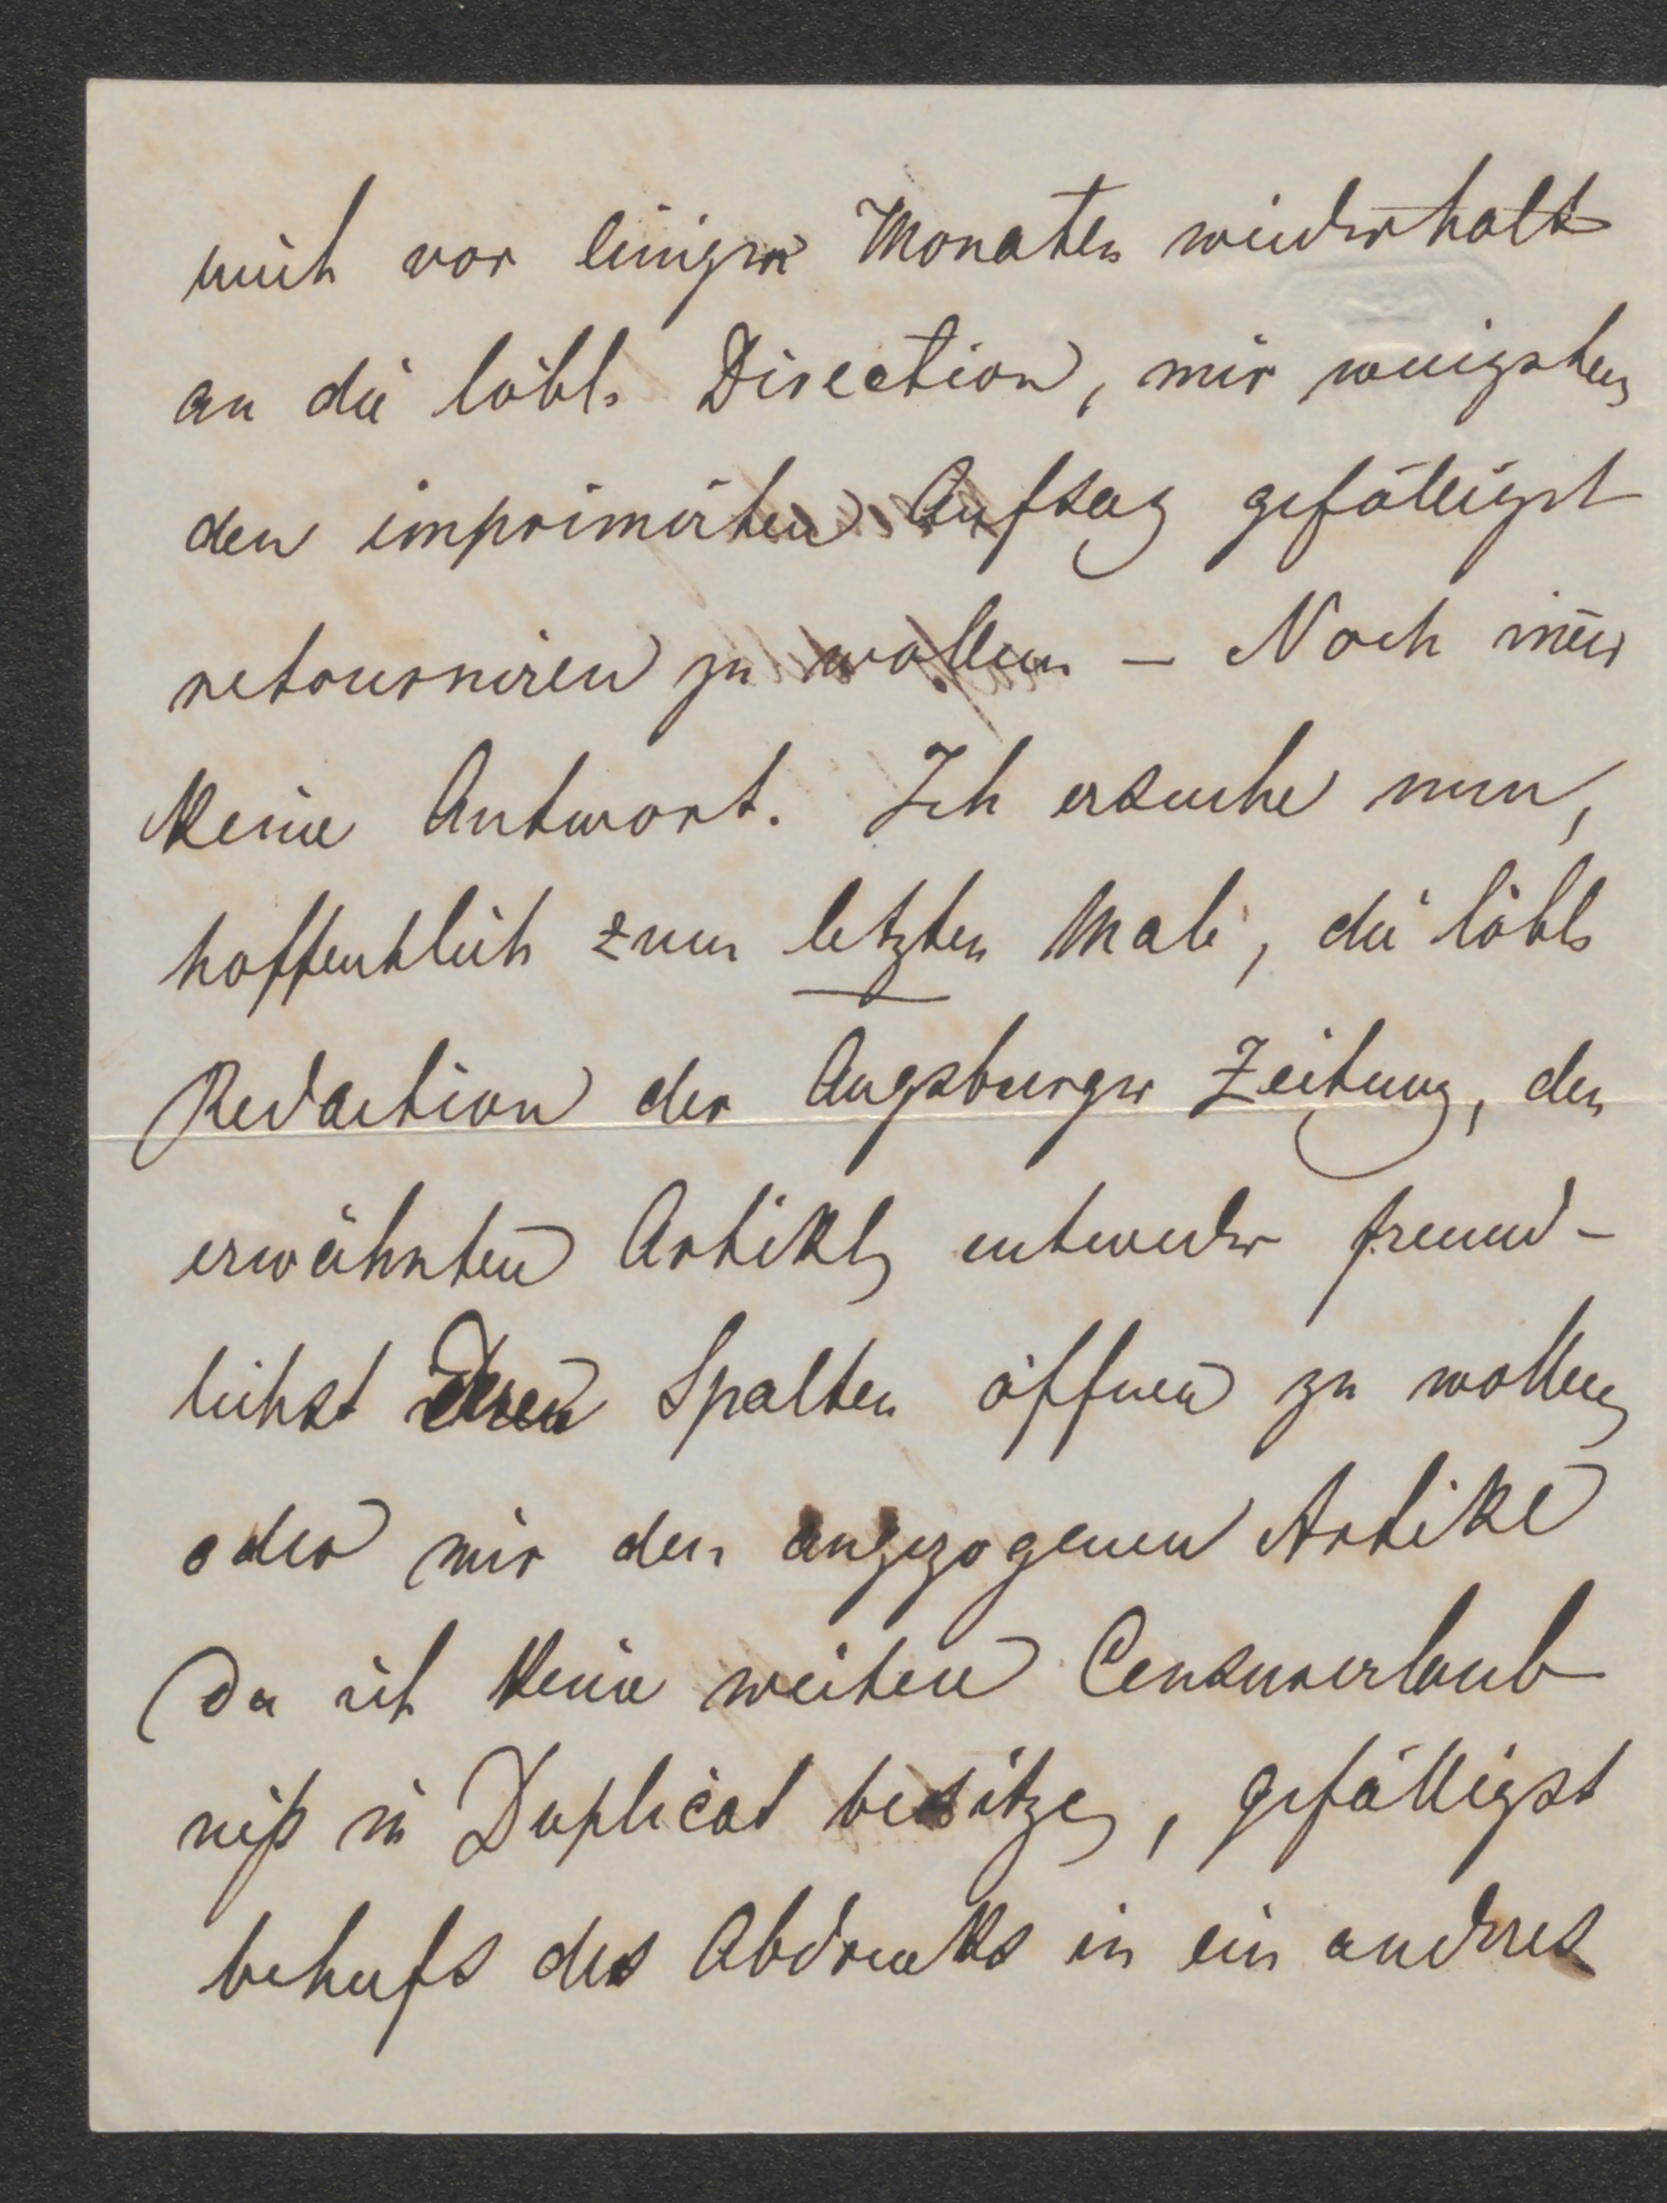 mich vor einigen Monaten wiederholt
an die löbl. Direction, mir wenigstens
den imprimirten Aufsatz gefälligst
retourniren zu wollen – Noch im̄er
keine Antwort. Ich ersuche nun,
hoffentlich zum letzten Male, die löbl.
Redaction der Augsburger Zeitung, den
erwähnten Artikel entweder freund-
lichst Spalten öffnen zu wollen
oder mir den angezogenen Artikel
Da ich keine weitere Censurerlaub
niß in Duplicat besitze, gefälligst
behufs des Abdrucks in ein anderes